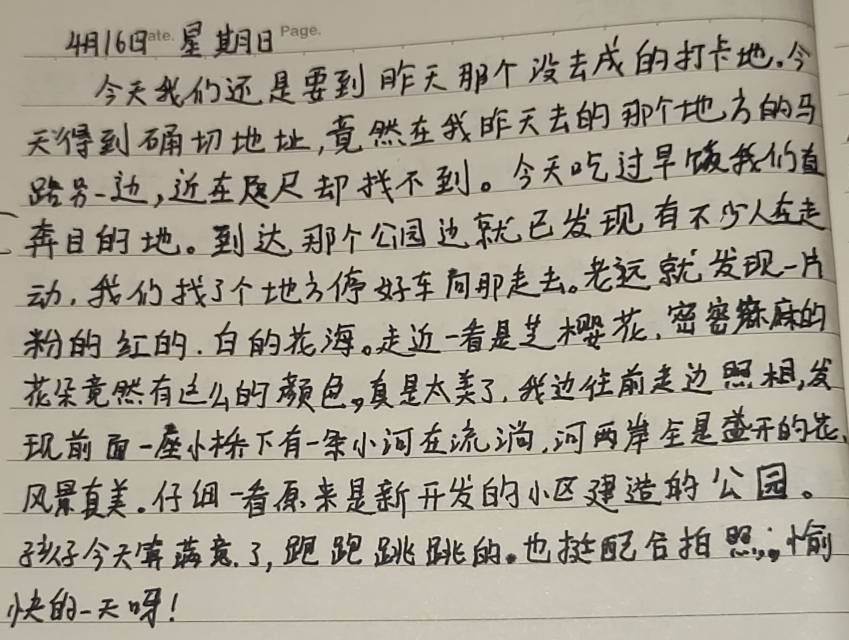 4月16日 ate. 星期日 Page.
今天我们还是要到昨天那个没去成的打卡地。今
天得到确切地址,竟然在我昨天去的那个地方的马
路另一边,近在咫尺却找不到。今天吃过早饭我们直
奔目的地。到达那个公园边就已发现有不少人在走
动,我们找了个地方停好车向那走去。老远就发现一片
粉的红的.白的花海。走近一看是芝樱花,密密麻麻的
花朵竟然有这么的颜色,真是太美了,我边往前走边照相,发
现前面一座小桥下有一条小河在流淌,河两岸全是盛开的花,
风景真美。仔细一看原来是新开发的小区建造的公园。
孩子今天算满意了,跑跑跳跳的。也挺配合拍照,愉
快的一天呀!